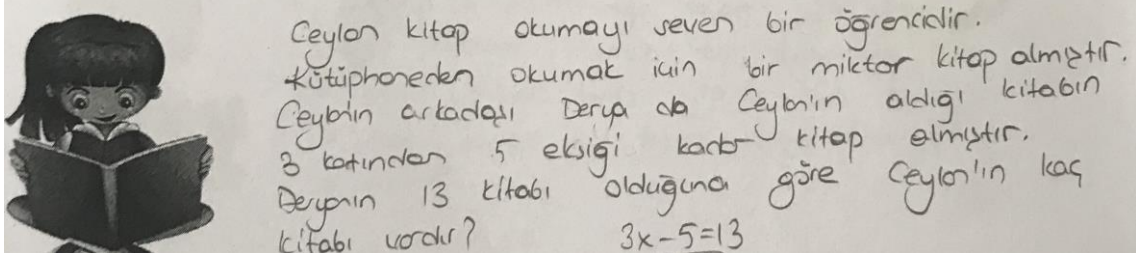 Ceylan kitap okumayı seven bir öğrencidir.
Kütüphaneden okumak için bir miktar kitap almıştır.
Ceylan'ın arkadaşı Derya da Ceylan'ın aldığı kitabın
3 katından 5 eksiği kadar kitap almıştır.
Derya'nın 13 kitabı olduğuna göre Ceylan'ın kaç
kitabı vardır? 3x-5=13